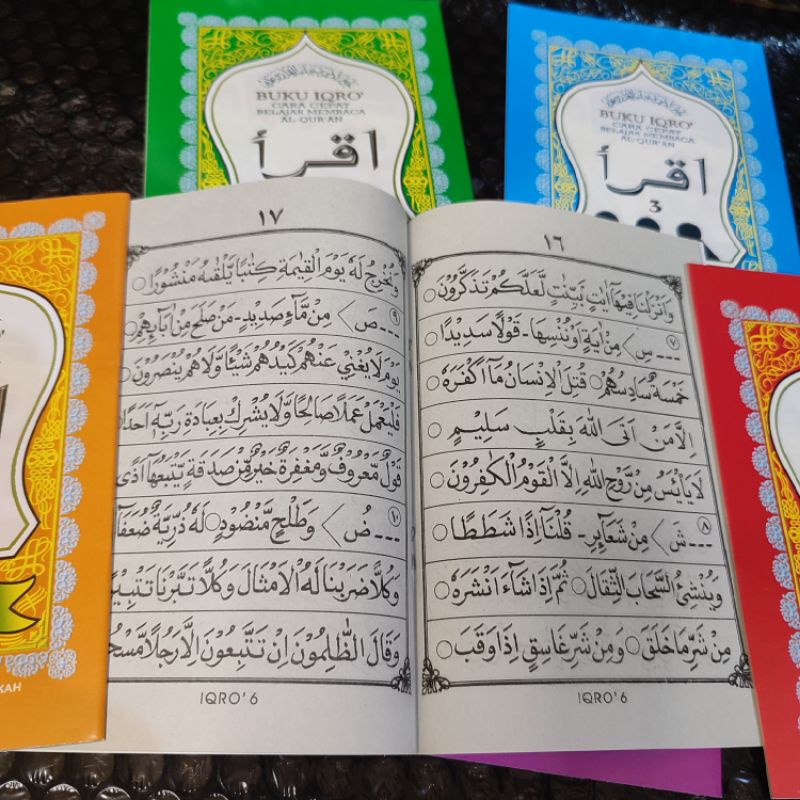 BUKU IQRO'
CARA CEPAT
BELAJAR MEMBACA
AL-QUR'AN
اقرأ
BUKU IQRO'
CARA CEPAT
BELAJAR MEMBACA
AL-QUR'AN
اقرأ
3
١٦
وَاَنْزَلْنَا فِيْهَآ اٰيٰتٍ بَيِّنٰتٍ لَّعَلَّكُمْ تَذَكَّرُوْنَ
٧ ---سِ > مِنْ اٰيَةٍ اَوْ نُنْسِهَا - قَوْلًا سَدِيْدًا
خَمْسَةٌ سَادِسُهُمْ ○ قُتِلَ الْاِنْسَانُ مَآ اَكْفَرَهٗ
اِلَّا مَنْ اَتَى اللّٰهَ بِقَلْبٍ سَلِيْمٍ
لَا يَايْئَسُ مِنْ رَّوْحِ اللّٰهِ اِلَّا الْقَوْمُ الْكٰفِرُوْنَ
٨ ---شَ > مِنْ شَعَآئِرِ - قُلْنَآ اِذًا شَطَطًا
وَيُنْشِئُ السَّحَابَ الثِّقَالَ ○ ثُمَّ اِذَا شَآءَ اَنْشَرَهٗ
مِنْ شَرِّ مَا خَلَقَ ○ وَمِنْ شَرِّ غَاسِقٍ اِذَا وَقَبَ
IQRO' 6
١٧
وَنُخْرِجُ لَهٗ يَوْمَ الْقِيٰمَةِ كِتٰبًا يَّلْقٰىهُ مَنْشُوْرًا
٩ ---صَ > مِنْ مَّآءٍ صَدِيْدٍ - مَنْ صَلَحَ مِنْ اٰبَآئِهِمْ
يَوْمَ لَا يُغْنِيْ عَنْهُمْ كَيْدُهُمْ شَيْئًا وَّلَا هُمْ يُنْصَرُوْنَ
فَلْيَعْمَلْ عَمَلًا صَالِحًا وَّلَا يُشْرِكْ بِعِبَادَةِ رَبِّهٖٓ اَحَدًا
قَوْلٌ مَّعْرُوْفٌ وَّمَغْفِرَةٌ خَيْرٌ مِّنْ صَدَقَةٍ يَّتْبَعُهَآ اَذًى
١٠ ---ضُ > وَطَلْحٍ مَّنْضُوْدٍ ○ لَهٗ ذُرِّيَّةٌ ضُعَفَآءُ
وَكُلًّا ضَرَبْنَا لَهُ الْاَمْثَالَ وَكُلًّا تَبَّرْنَا تَتْبِيْرًا
وَقَالَ الظّٰلِمُوْنَ اِنْ تَتَّبِعُوْنَ اِلَّا رَجُلًا مَّسْحُ
IQRO' 6